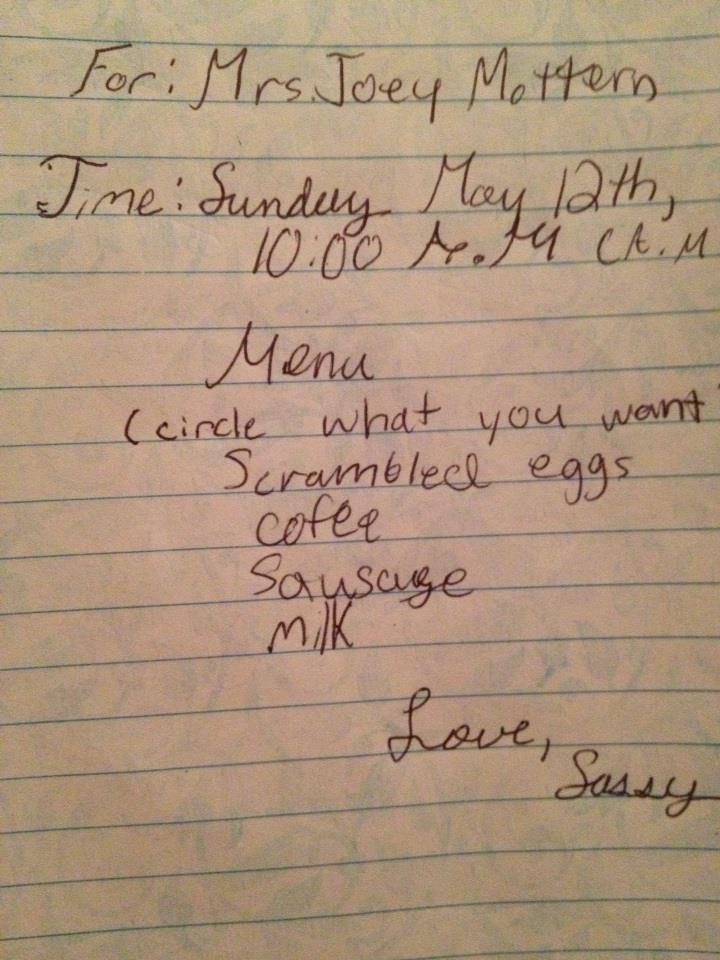 For: Mrs. Joey Mottern
Time: Sunday May 12th,
10:00 A.M (A.M
Menu
(circle what you want
Scrambled eggs
cofee
Sausage
milk
Love,
Sassy